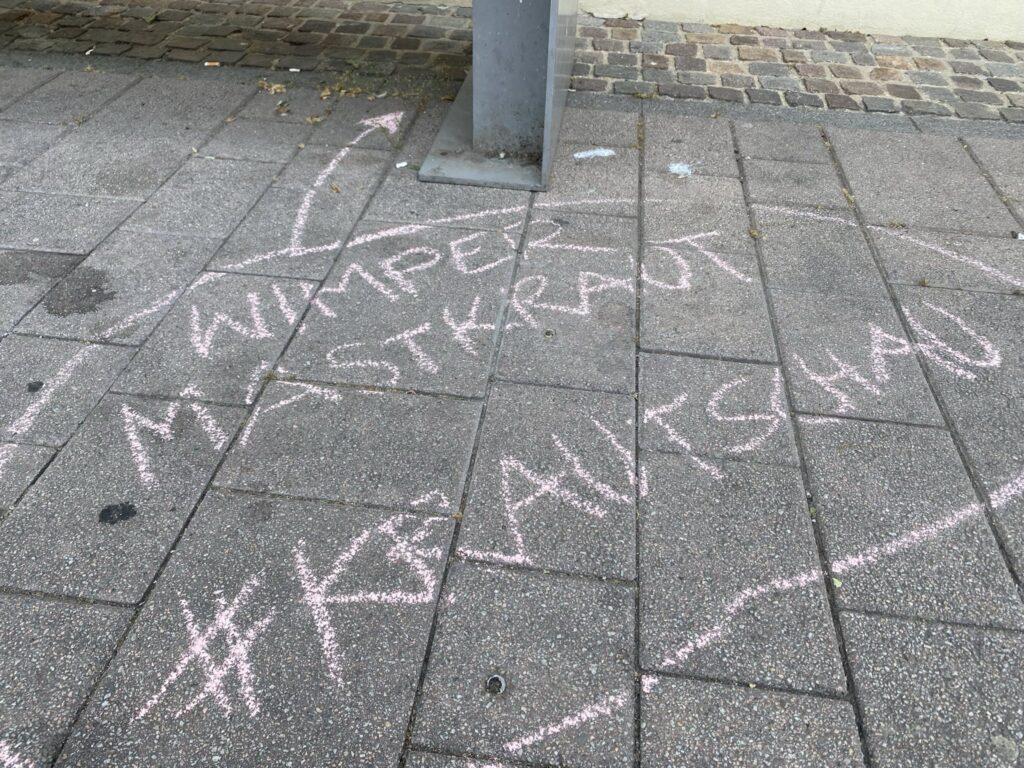 WIMPER-
MASTKRAUT
#KRAUTSCHAU